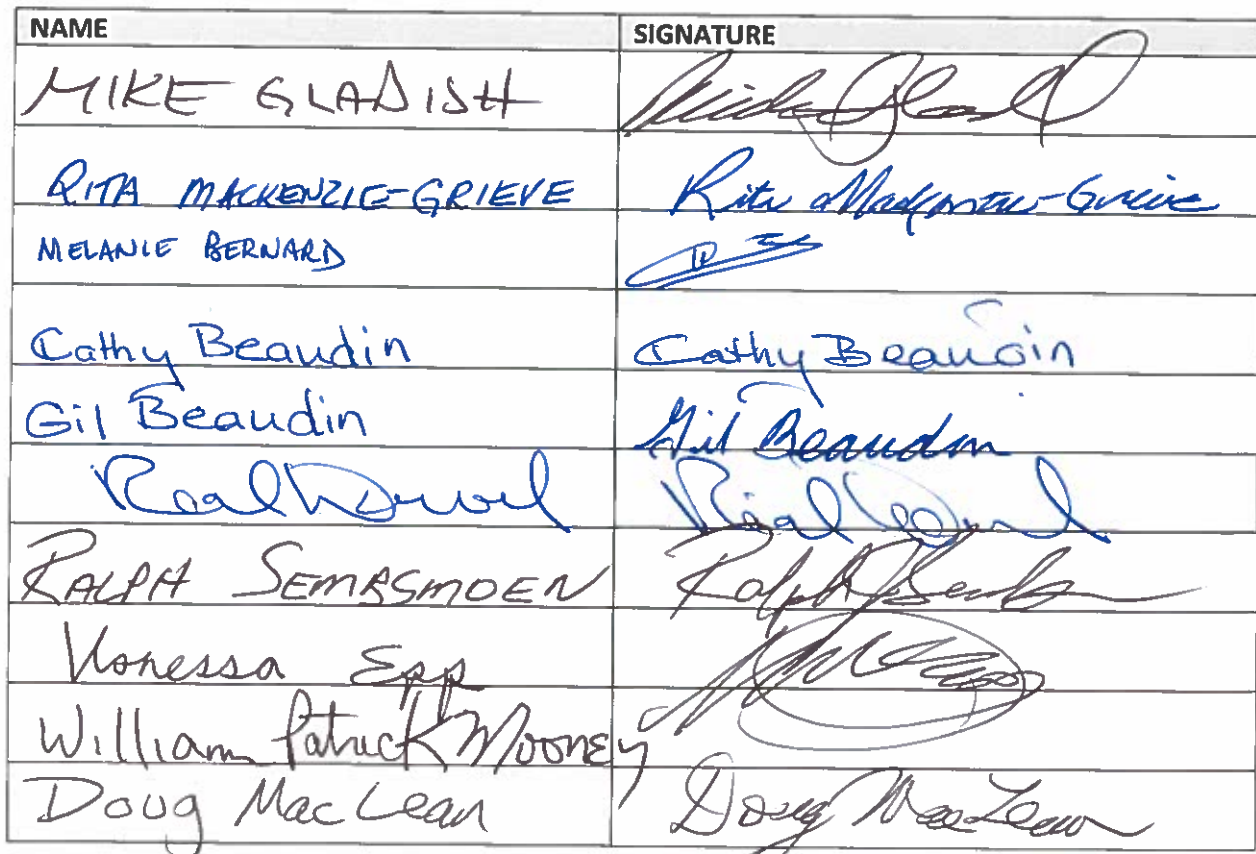 NAME SIGNATURE
MIKE GLADISH
RITA MACKENZIE-GRIEVE Rita Mackenzie-Grieve
MELANIE BERNARD
Cathy Beaudin Cathy Beaudin
Gil Beaudin Gil Beaudin
Real Réal
RALPH SEMBSMOEN Ralph
Vanessa Epp
William Patrick Mooney
Doug MacLean Doug MacLean